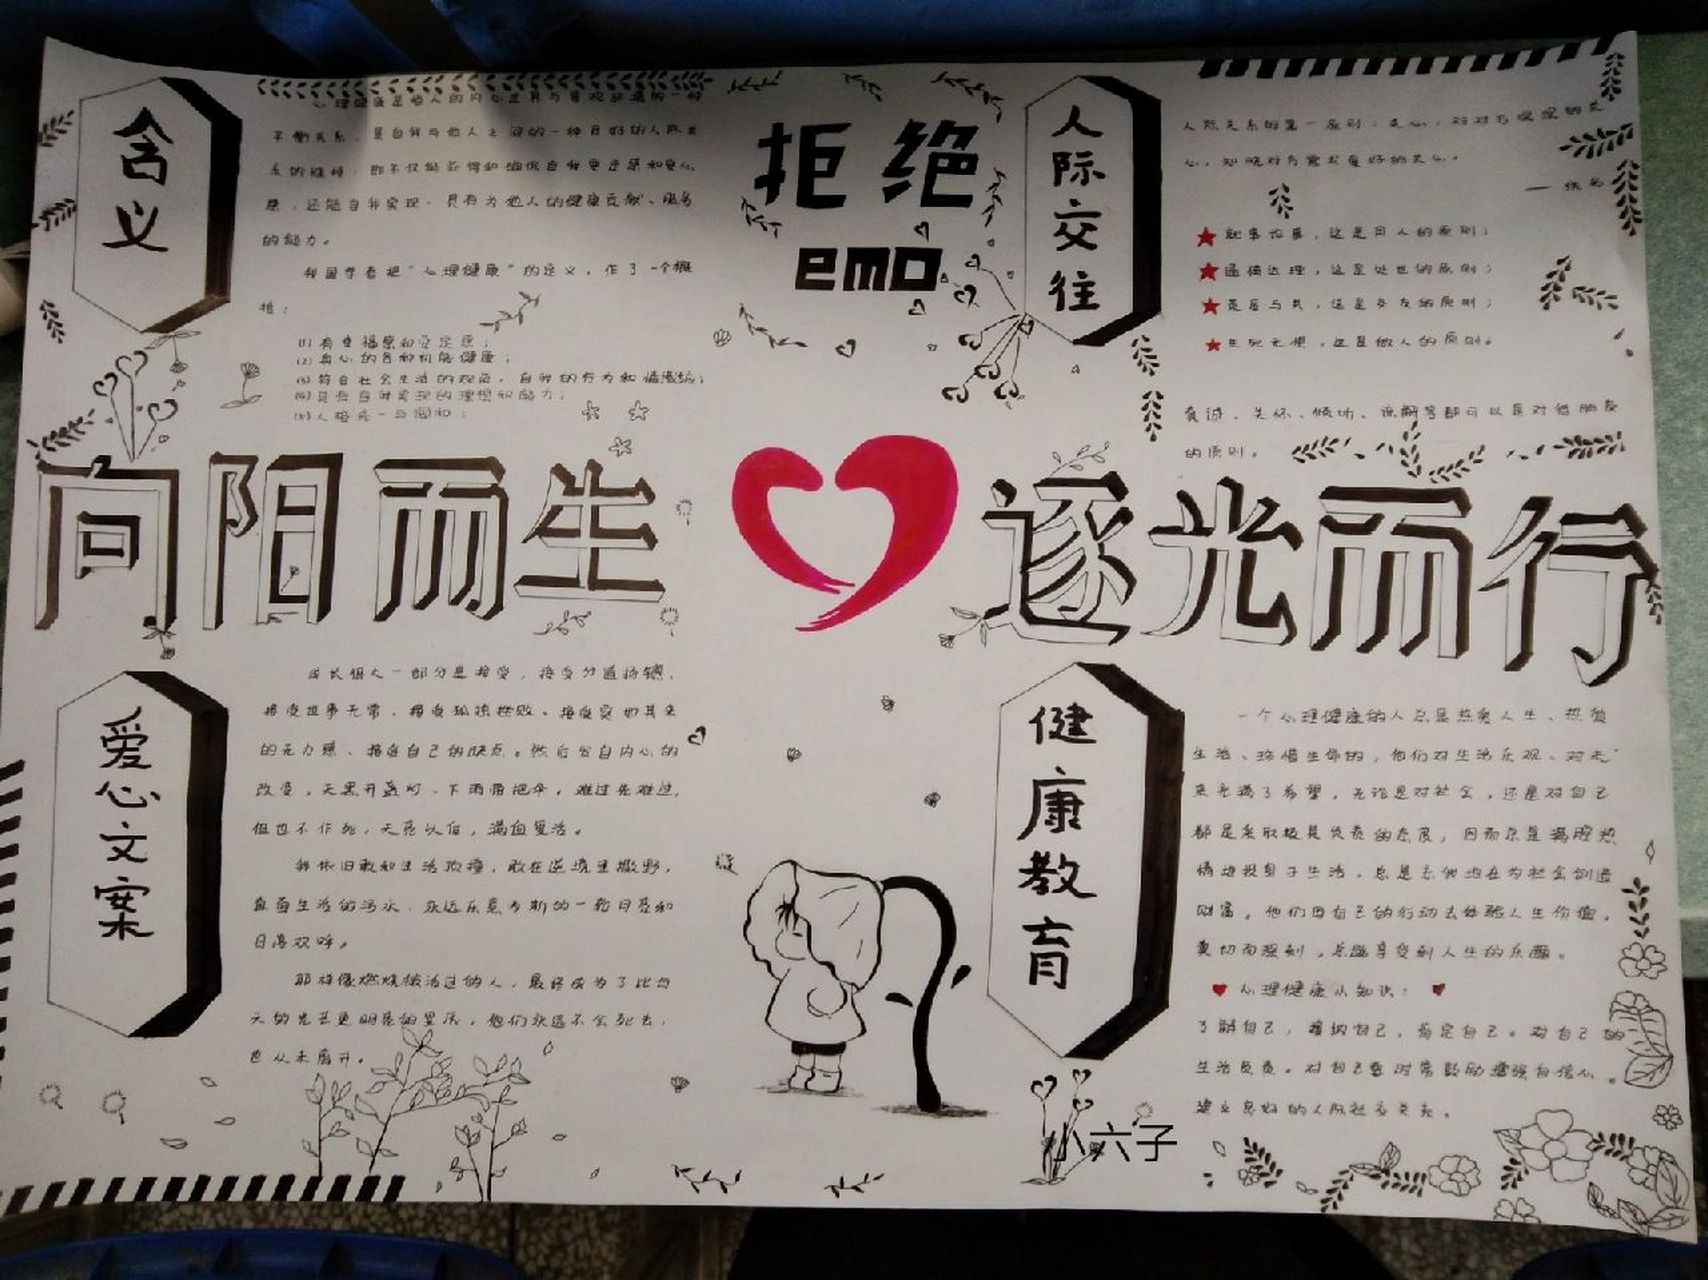 含义
心理健康是他人的内心世界与客观环境的一种
平衡关系，是自我与他人之间的一种良好的人际关
系的维持，即不仅能获得和确保自我更定感和安心
感，还能自我实现，具有为他人的健康贡献、服务
的能力。
我国学者把“心理健康”的定义，作了一个概
括：
(1)有幸福感和安定感；
(2)身心的各种机能健康；
(3)符合社会生活的规范，自我的行为和情绪
(4)具有自我实现的理想和能力；
(5)人格统一与调和；
拒绝
emo
人际交往
人际关系的第一原则：关心，对对方现况的关
心，知晓对方需求更好的关心。
—— 佚名
就事论事，这是同人的原则；
通情达理，这是处世的原则；
荣辱与共，这是交友的原则；
生死无惧，这是做人的原则。
真诚、关怀、倾听、谅解等都可以是对待朋友
的原则。
向阳而生
逐光而行
爱心文案
成长很大一部分是接受，接受分道扬镳，
接受世事无常，接受孤独挫败、接受突如其来
的无力感，接受自己的缺点。然后发自内心的
改变，天黑开盏灯、下雨带把伞，难过先难过，
但也不作死，天亮以后，满血复活。
我依旧敢和生活顶撞，敢在逆境里撒野，
直面生活的污水，永远乐意为新的一轮月亮和
日落欢呼。
那对像燃烧般活过的人，最终成为了比白
天的光芒更明亮的星辰，他们永远不会死去，
也从未离开。
健康教育
一个心理健康的人总是热爱人生、热爱
生活、珍惜生命的，他们对生活乐观、对未
来充满了希望，无论是对社会，还是对自己
都是采取极其负责的态度，因而总是满腔热
情地投身于生活，总是主动地在为社会创造
财富。他们用自己的行动去体验人生价值，
更切而深刻，乐趣享受到人生的乐趣。
心理健康认知识：
了解自己，接纳自己，肯定自己。对自己的
生活负责。对自己要时常鼓励增强自信心。
建立良好的人际社会关系。
小六子